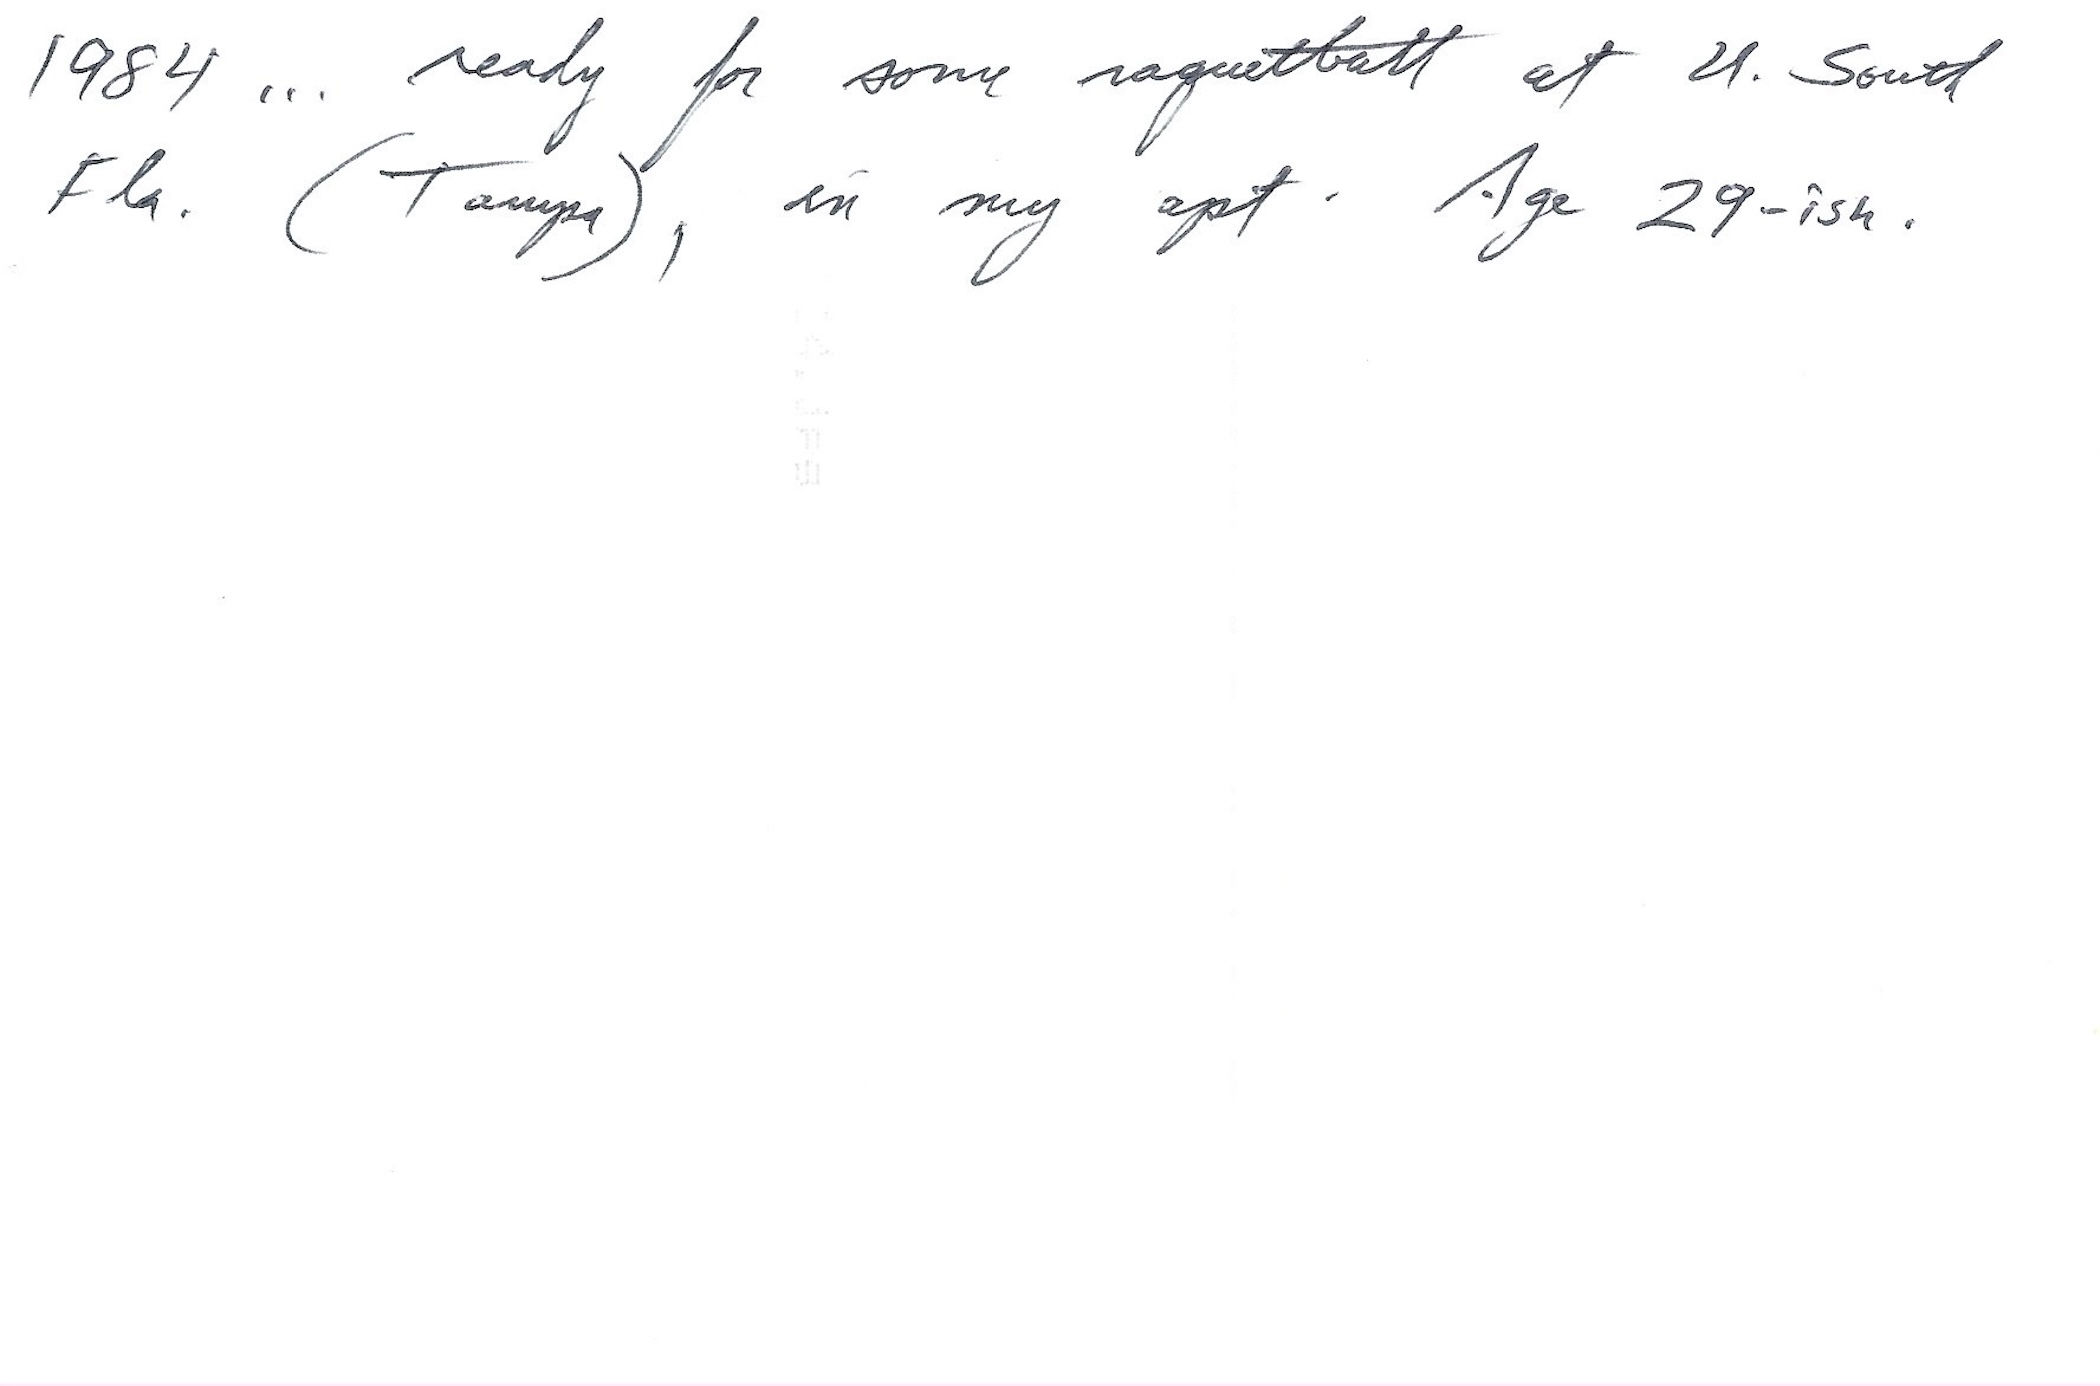 1984 ... ready for some raquetball at U. South
Fla. (Tampa), in my apt. Age 29-ish.